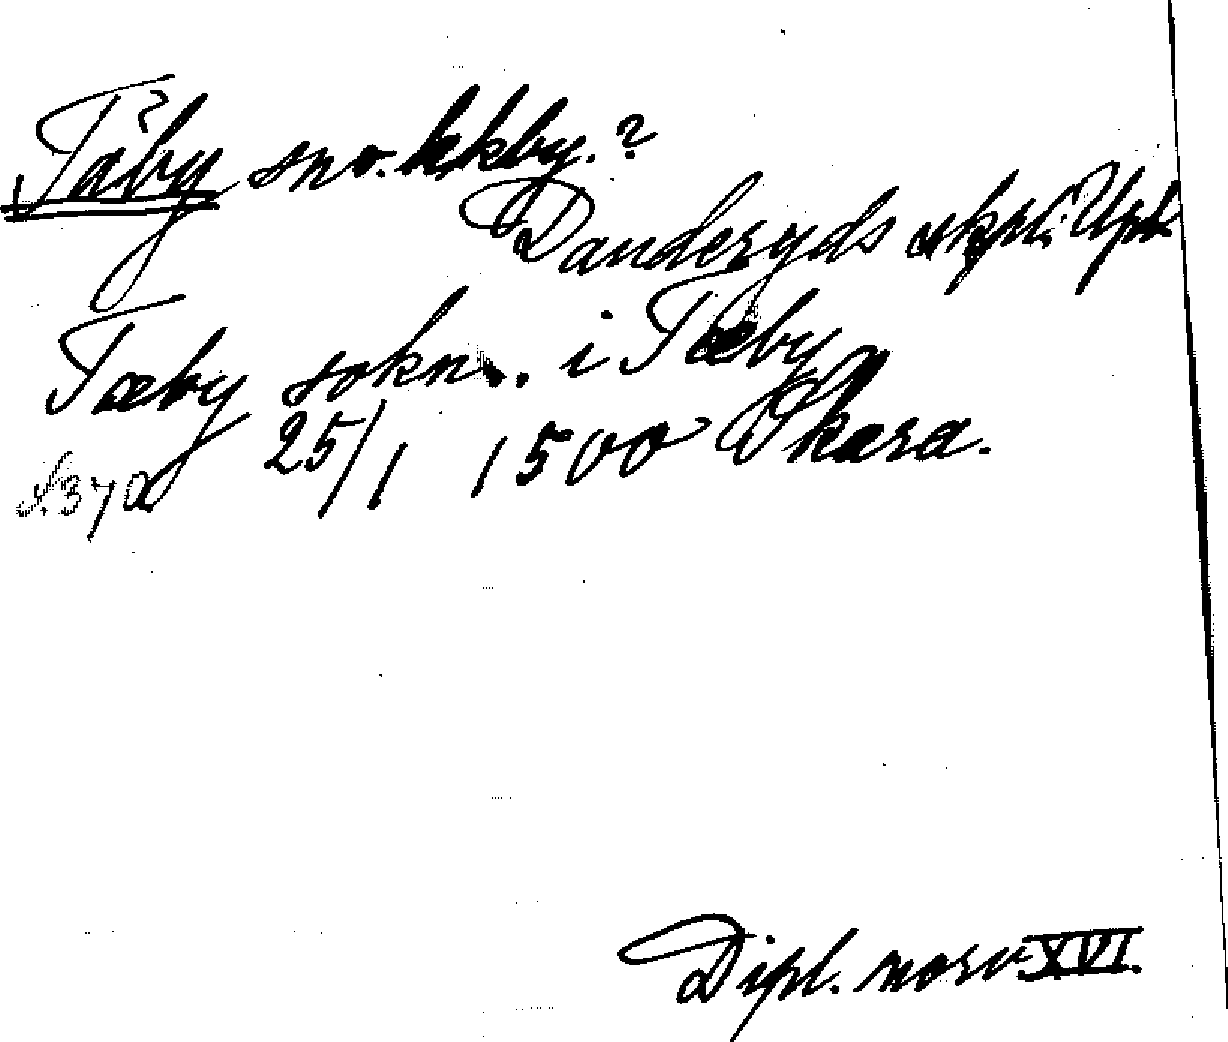 Täby sn o. kkby.?
Danderyds skpl. Upl.
Tæby sokn.. i Tæby
25/1 1500 Skara.
N.370
Dipl. norv. XVI.